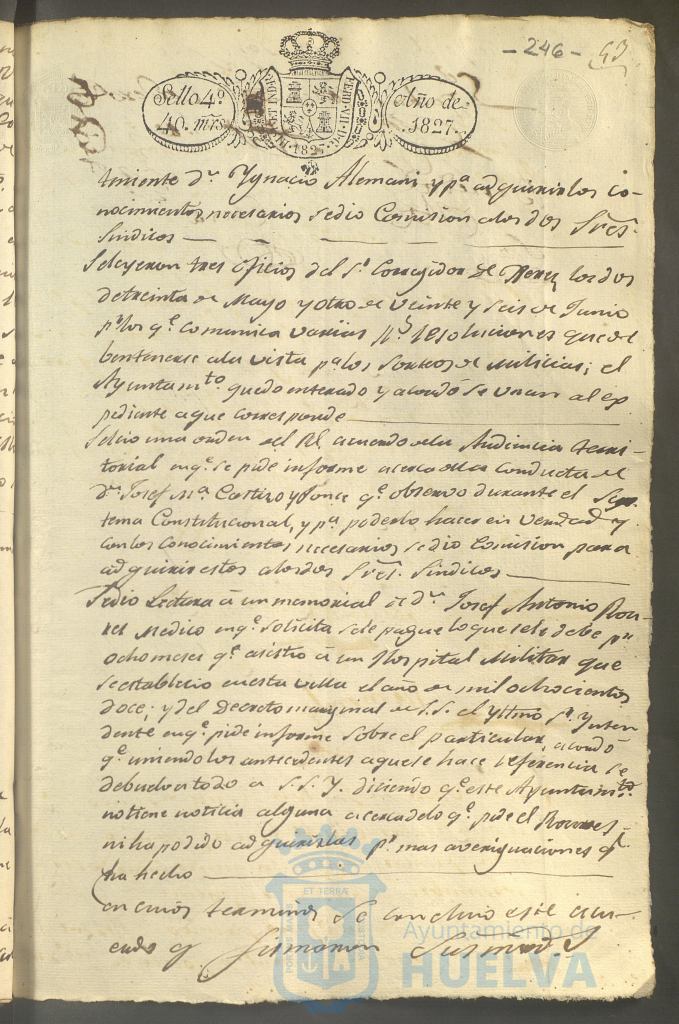 - 246 - 53
Sello 4º
40. mrs
HISP. ET IND. R.
FERD. VII. D. G.
1827.
Año de
1827.
teniente dn. Ygnacio Alemani y pa. adquirir los co-
nocimientos necesarios se dio Comision a los dos Sres.
Sindicos
Se leyeron tres oficios del Sr. Corregidor de los dos
de treinta de Mayo y otro de veinte y seis de Junio
pr. los qe. comunica varias rs. resoluciones que de
ben tenerse a la vista pa. los Sorteos de Milicias; el
Ayuntamto. quedo enterado y acordó se unan al ex
pediente a que corresponde
Se leio una orden del Rl. acuerdo de la Audiencia terri-
torial en qe. se pide informe acerca de la Conducta de
dn. Josef Ma. Castizo y Ponce qe. observo durante el Sys-
tema Constitucional, y pa. poderlo hacer en verdad y
con los Conocimientos necesarios se dio Comision para
adquirir estos a los dos Sres. Sindicos
Se dio Lectura á un memorial de dn. Josef Antonio
Medico en qe. solicita se le pague lo que se le debe pr.
ocho meses qe. asistio á un Hospital Militar que
se establecio en esta villa el año de mil ochocientos
doce; y del Decreto marginal de S.S. el Yltmo Sr. Ynten
dente en qe. pide informe sobre el particular, acordó
qe. uniendo los antecedentes a que se hace referencia se
debuelva todo a S.S.Y. diciendo qe. este Ayuntamto.
no tiene noticia alguna acerca de lo qe. pide el
ni ha podido adquirirlas pr. mas averiguaciones qe.
ha hecho
en cuios terminos se concluio este acu-
erdo q firmaron sus mrds.
ET TERRÆ
Ayuntamiento de
HUELVA